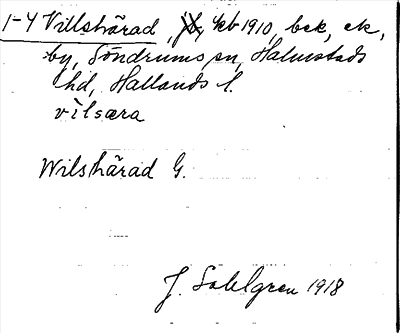 1-4 Villshärad, jb, kb 1910, bek, ek,
by, Söndrums sn, Halmstads
hd, Hallands l.
vìlsæra
Wilshärad G.
J. Sahlgren 1918